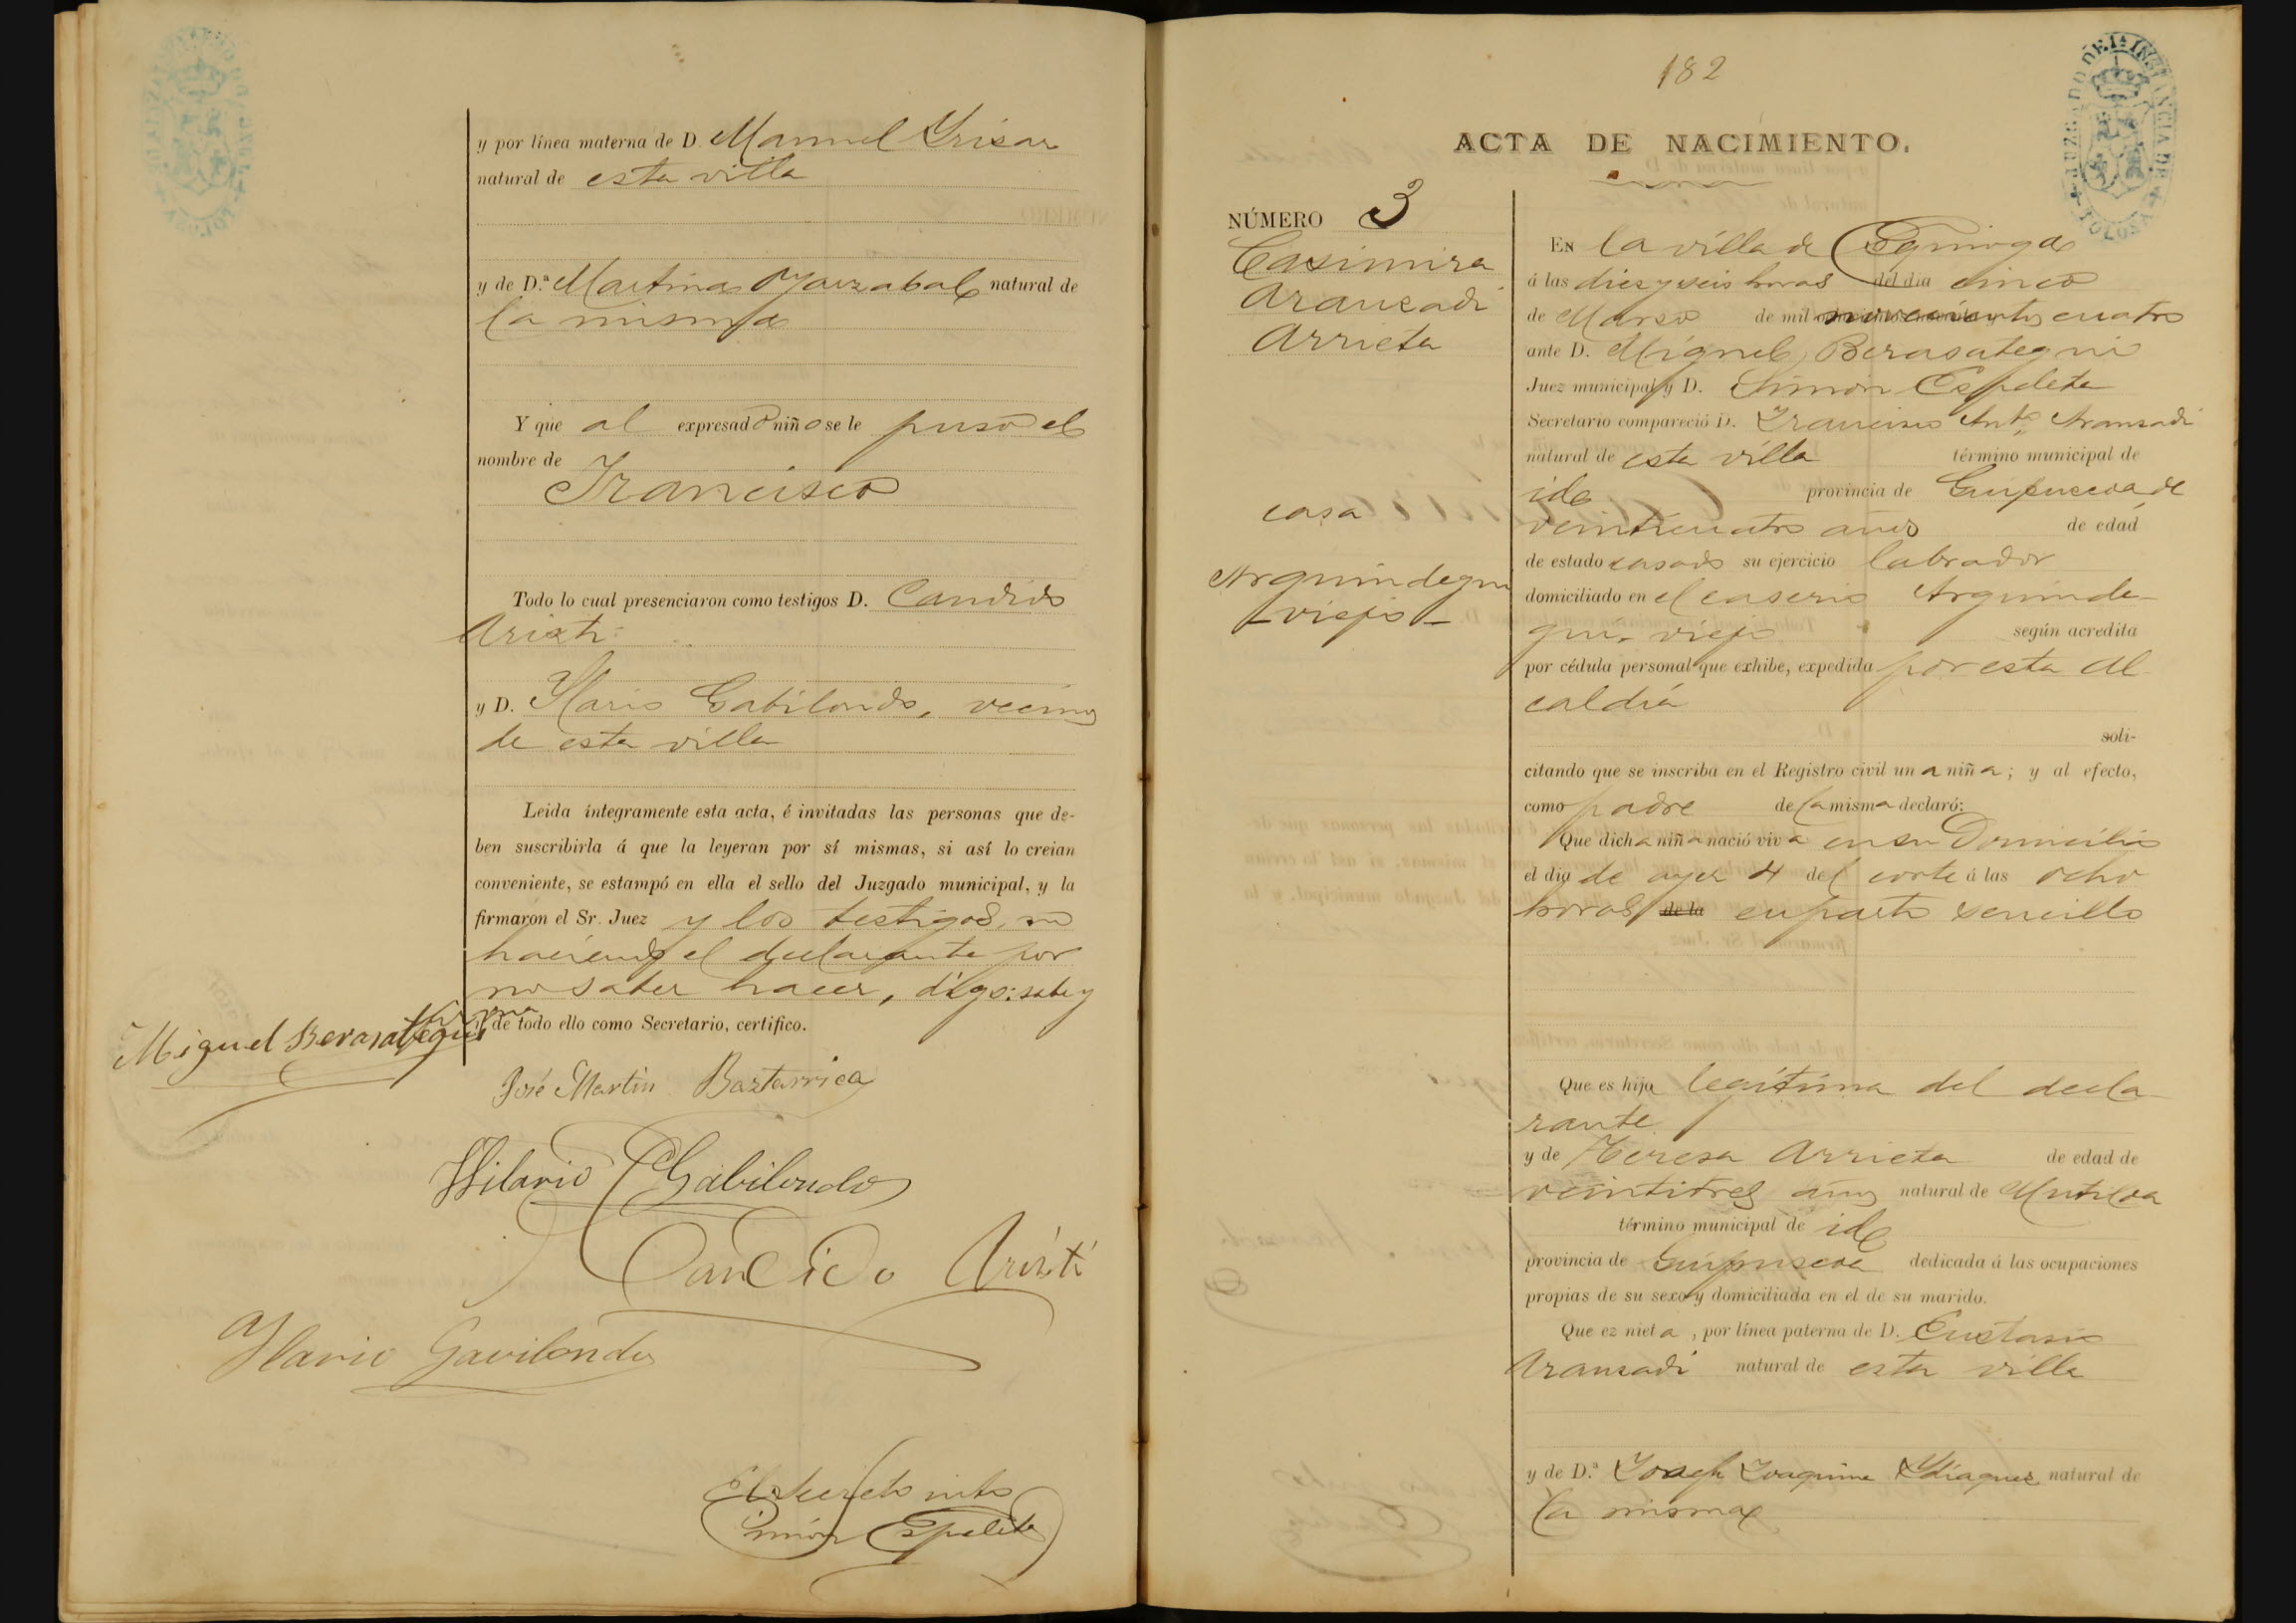 y por línea materna de D. Manuel Yrisar
natural de esta villa
y de D.ª Martina Oyarzabal natural de
la misma
Y que al expresado niño se le puso el
nombre de
Francisco
Todo lo cual presenciaron como testigos D. Candido
Aristi
y D. Ylario Gabilondo, vecinos
de esta villa
Leida íntegramente esta acta, é invitadas las personas que de-
ben suscribirla á que la leyeran por sí mismas, si así lo creian
conveniente, se estampó en ella el sello del Juzgado municipal, y la
firmaron el Sr. Juez y los testigos, no
haciendo el declarante por
no saber hacer, digo: sabe y
firma
de todo ello como Secretario, certifico.
Miguel Berasategui
José Martin Baztarrica
Hilario Gabilondo
Candido Aristi
Ylario Gavilondo
El Secreto into
Simón Espelete
182
JUZGADO DE 1ª INSTANCIA DE TOLOSA
ACTA DE NACIMIENTO.
NÚMERO 3
Casimira
Aranzadi
Arrieta
casa
Arguindegui
viejo
En la villa de Cegama
á las diez y seis horas del dia cinco
de Marzo de mil novecientos cuatro
ante D. Miguel Berasategui
Juez municipal y D. Simon Espelete
Secretario compareció D. Francisco Ant.º Aranzadi
natural de esta villa término municipal de
id. provincia de Guipuzcoa de
veinticuatro años de edad
de estado casado su ejercicio labrador
domiciliado en el caserio Arguinde-
gui-viejo según acredita
por cédula personal que exhibe, expedida por esta Al-
caldía
soli-
citando que se inscriba en el Registro civil una niña; y al efecto,
como padre de la misma declaró:
Que dicha niña nació viva en su Domicilio
el dia de ayer 4 del corte á las ocho
horas de la en parto sencillo
Que es hija legítima del decla-
rante
y de Teresa Arrieta de edad de
veintitres años natural de Mutiloa
término municipal de id.
provincia de Guipuzcoa dedicada á las ocupaciones
propias de su sexo y domiciliada en el de su marido.
Que ez nieta, por línea paterna de D. Eustasio
Aranzadi natural de esta villa
y de D.ª Josefa Joaquina Ydiaquez natural de
la misma